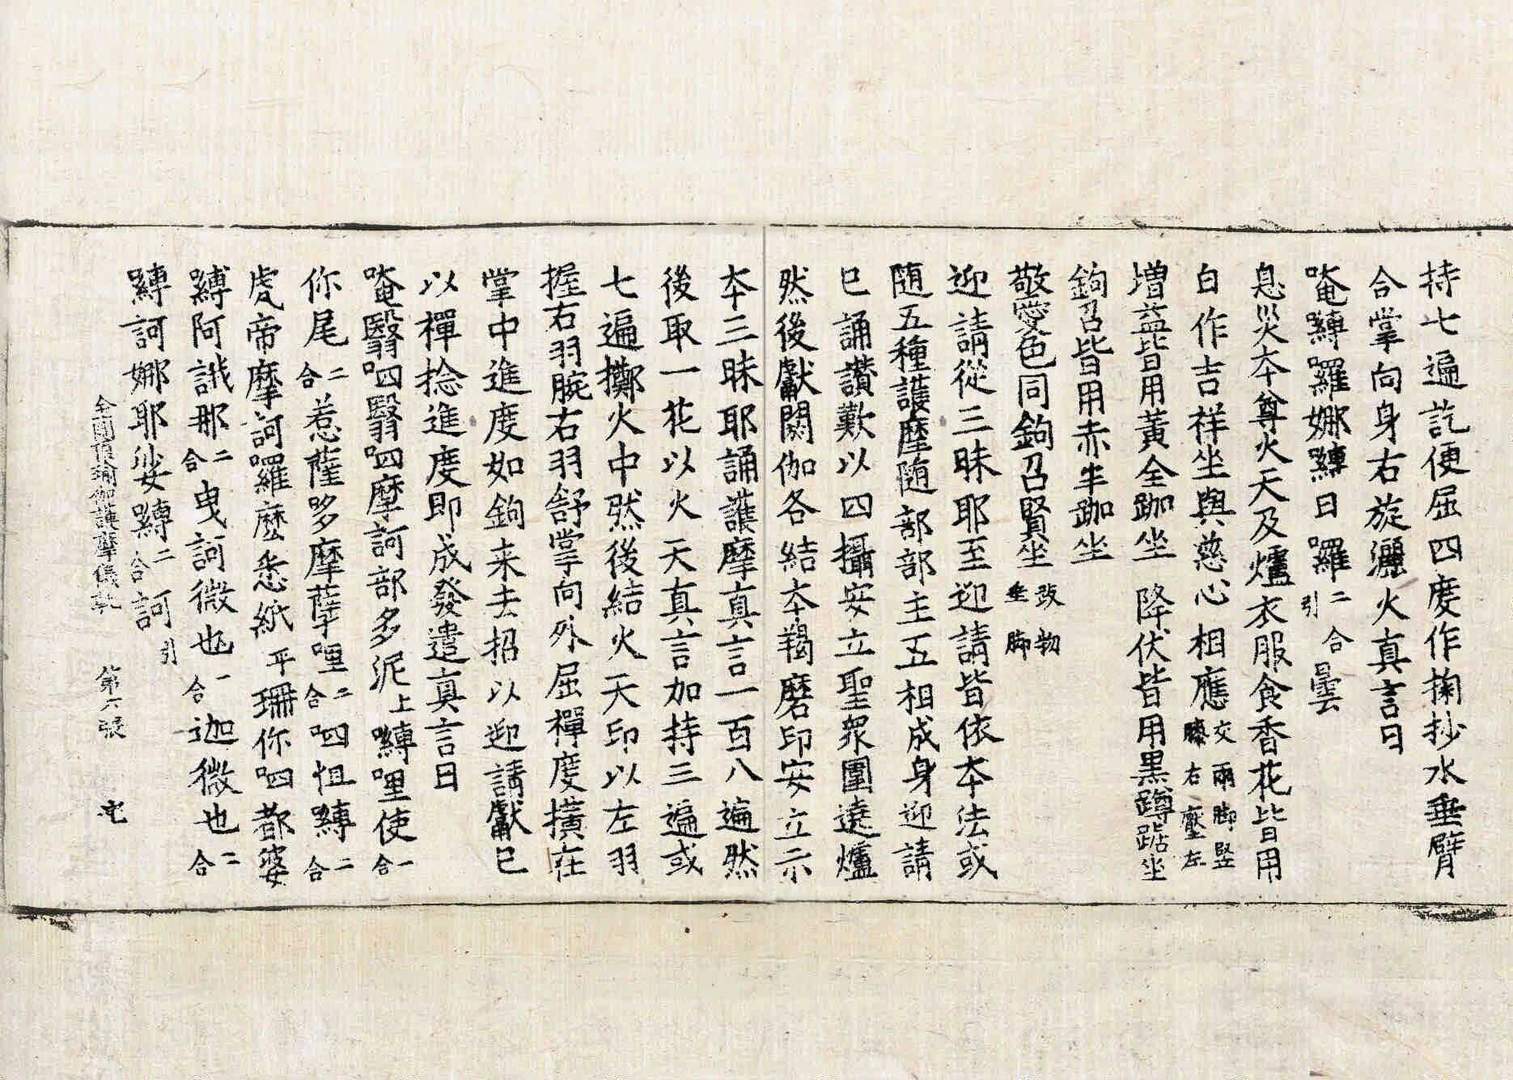 持七遍訖便屈四度作掬抄水垂臂
合掌向身右旋灑火真言曰
唵嚩羅娜嚩日羅二合引曇
息災本尊火天及爐衣服食香花皆用
白作吉祥坐與慈心相應交兩脚竪膝右壓左
增益皆用黃全跏坐 降伏皆用黑蹲踞坐
鉤召皆用赤半跏坐
敬愛色同鉤召賢坐並脚
迎請從三昧耶至迎請皆依本法或
随五種護摩随部部主五相成身迎請
已誦讚歎以四攝安立聖衆圍遶爐
然後獻閼伽各結本羯磨印安立示
本三昧耶誦護摩真言一百八遍然
後取一花以火天真言加持三遍或
七遍擲火中然後結火天印以左羽
握右羽腕右羽舒掌向外屈禪度橫在
掌中進度如鉤来去招以迎請獻已
以禪捻進度即成發遣真言曰
唵翳呬翳呬摩訶部多泥上嚩哩使一合
你尾二合惹薩哆摩孽哩二合呬怛嚩二合
虎帝摩訶囉麽悉紙平珊你呬都婆
嚩阿誐那二合曳訶微也一合迦微也二合
嚩訶娜耶娑嚩二合訶引
金剛頂瑜伽護摩儀軌 第六張